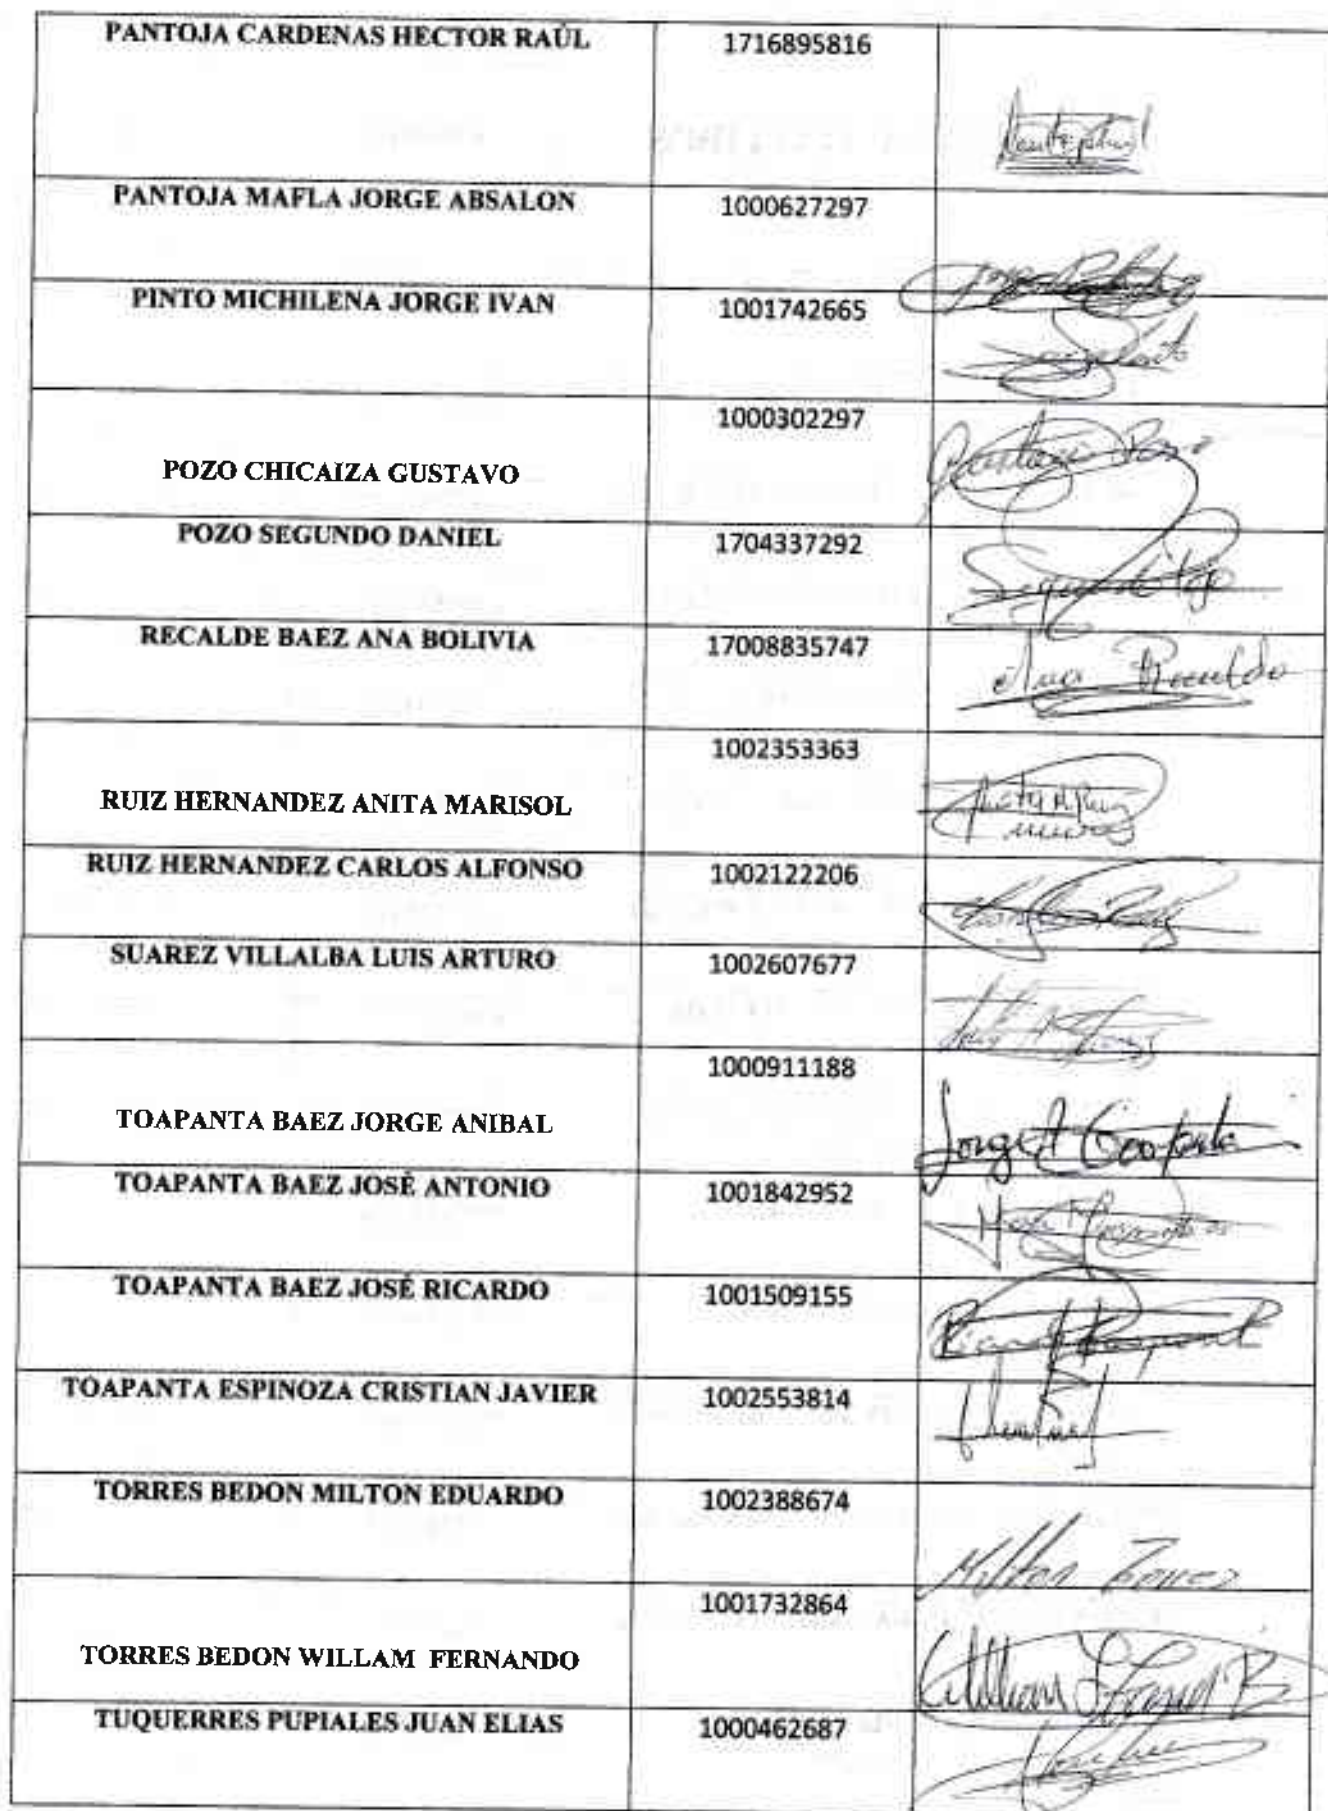 PANTOJA CARDENAS HECTOR RAÚL 1716895816
PANTOJA MAFLA JORGE ABSALON 1000627297
PINTO MICHILENA JORGE IVAN 1001742665
POZO CHICAIZA GUSTAVO 1000302297
POZO SEGUNDO DANIEL 1704337292
RECALDE BAEZ ANA BOLIVIA 17008835747
RUIZ HERNANDEZ ANITA MARISOL 1002353363
RUIZ HERNANDEZ CARLOS ALFONSO 1002122206
SUAREZ VILLALBA LUIS ARTURO 1002607677
TOAPANTA BAEZ JORGE ANIBAL 1000911188
TOAPANTA BAEZ JOSÉ ANTONIO 1001842952
TOAPANTA BAEZ JOSÉ RICARDO 1001509155
TOAPANTA ESPINOZA CRISTIAN JAVIER 1002553814
TORRES BEDON MILTON EDUARDO 1002388674
Milton Torres
TORRES BEDON WILLAM FERNANDO 1001732864
TUQUERRES PUPIALES JUAN ELIAS 1000462687